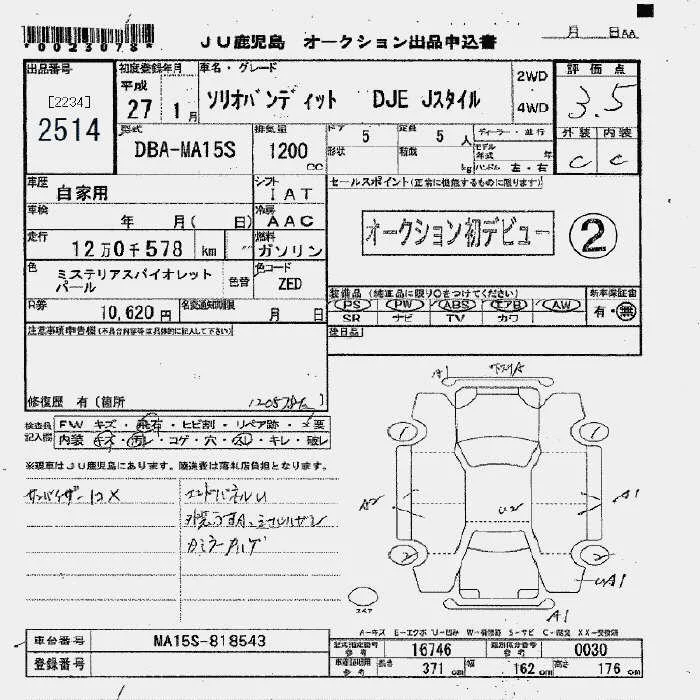 *0023078*
JU鹿児島 オークション出品申込書
月 日AA
出品番号
[2234]
2514
初度登録年月
平成
27 1月
車名・グレード
ソリオバンディット DJE Jスタイル
2WD
4WD
評価点
3.5
外装 内装
C C
型式
DBA-MA15S
排気量
1200
cc
ドア 5
定員 5人
形状
積載 kg
ディーラー・並行
モデル年式 年
ハンドル 左・右
車歴
自家用
シフト
IAT
車検
年 月( 日)
冷房
AAC
走行
12万0千578 km
燃料
ガソリン
色
ミステリアスバイオレット
パール
色替
色コード
ZED
R券
10,620円
名変通知期限
月 日
セールスポイント(正常に機能するものに限ります)
オークション初デビュー
2
装備品(純正品に限り○をつけてください)
PS PW ABS エアB AW
SR ナビ TV カワ
新車保証書
有・無
後日品
注意事項申告欄(不具合内容等は具体的に記入して下さい)
修復歴 有(箇所
120578km)
検査員
記入欄
FW キズ・飛石・ヒビ割・リペア跡・×要
内装 キズ・汚レ・コゲ・穴・スレ・キレ・破レ
※現車はJU鹿児島にあります。陸送費は落札店負担となります。
サンバイザーコメ
エンドパネルU
カミラーカルゲ
A
下スリA
1
1
A2
U2
A1
2
2
UA1
スペア
A1
A-キズ E-エクボ U-凹み W-補修跡 S-サビ C-腐食 XX-交換跡
車台番号
MA15S-818543
登録番号
型式指定番号
参考
16746
類別区分番号
参考
0030
車両諸元
参考
長さ 371cm
幅 162cm
高さ 176cm